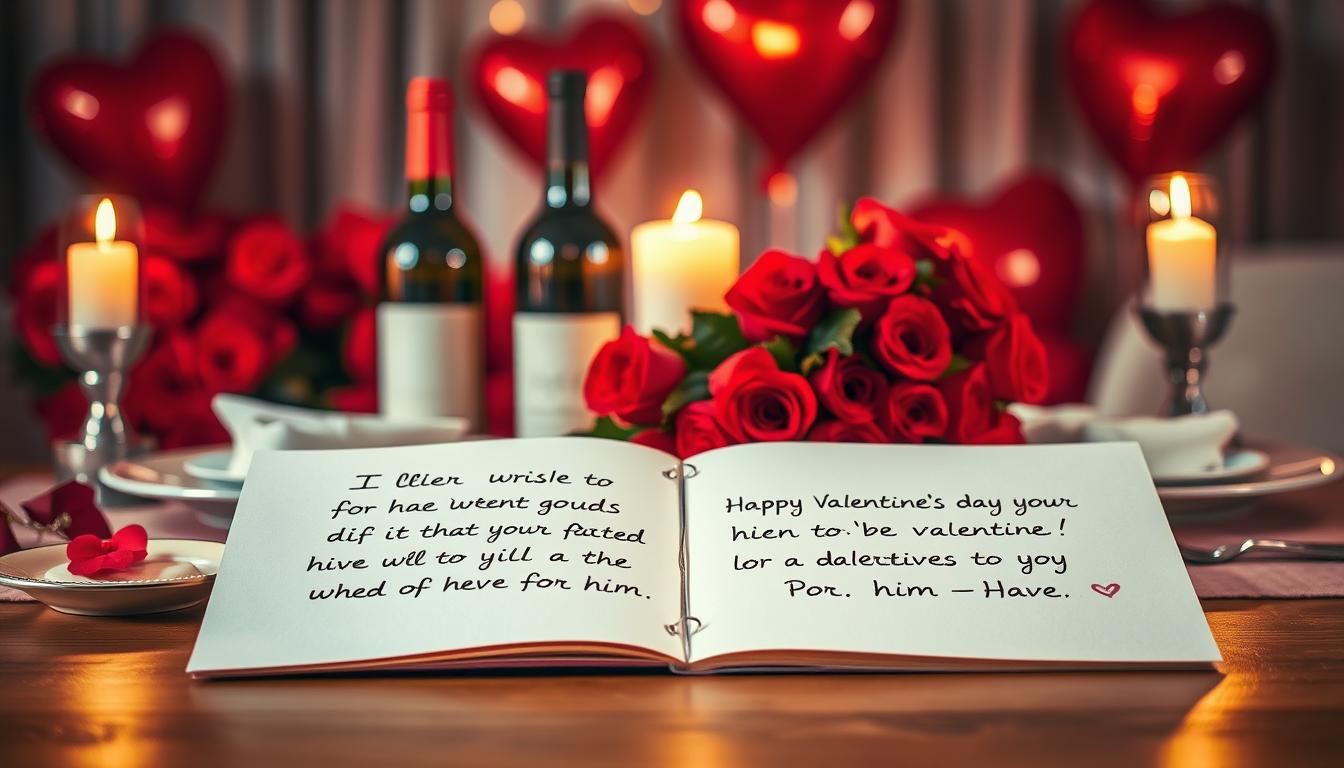 I Cller wrisle to
for hae wœent gouds
dif it that your fucted
hive will to yill a the
whed of heve for him.
Happy Valentine's day your
hien to.'be valentine!
lor a dalertives to yoy
Por. him — Have.